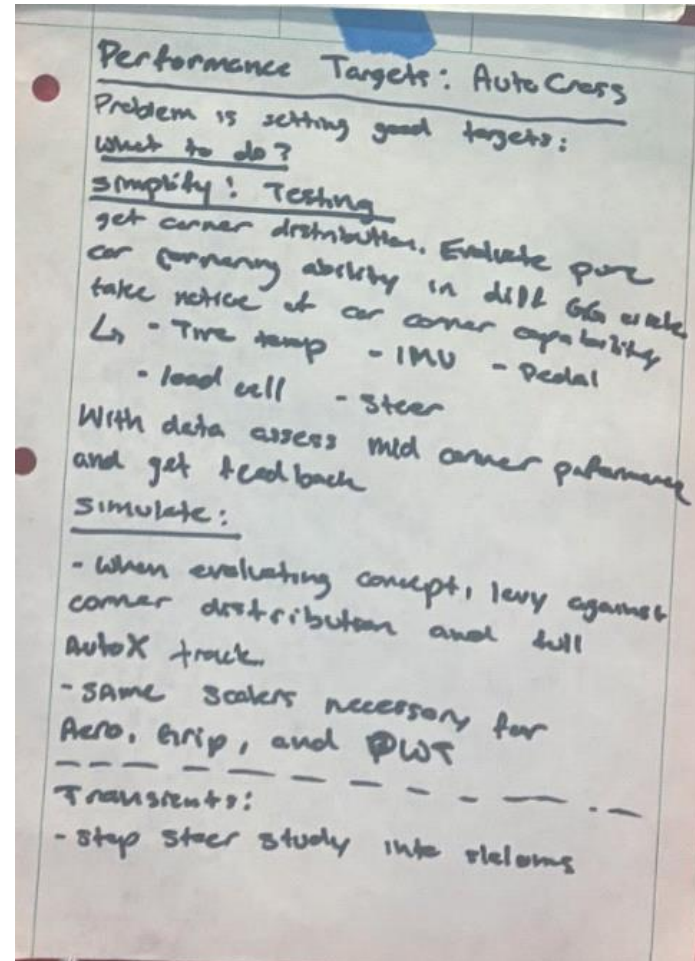 Performance Targets: AutoCross
Problem is setting good targets:
What to do?
simplify! Testing
get corner distribution. Evaluate pure
car cornering ability in diff GG circle
take notice of car corner capability
↳ - Tire temp - IMU - Pedal
- load cell - Steer
With data assess mid corner performance
and get feedback
Simulate:
- When evaluating concept, levy against
corner distribution and full
AutoX track.
- SAME scalers necessary for
Aero, Grip, and PWT
Transients:
- Step steer study into slaloms